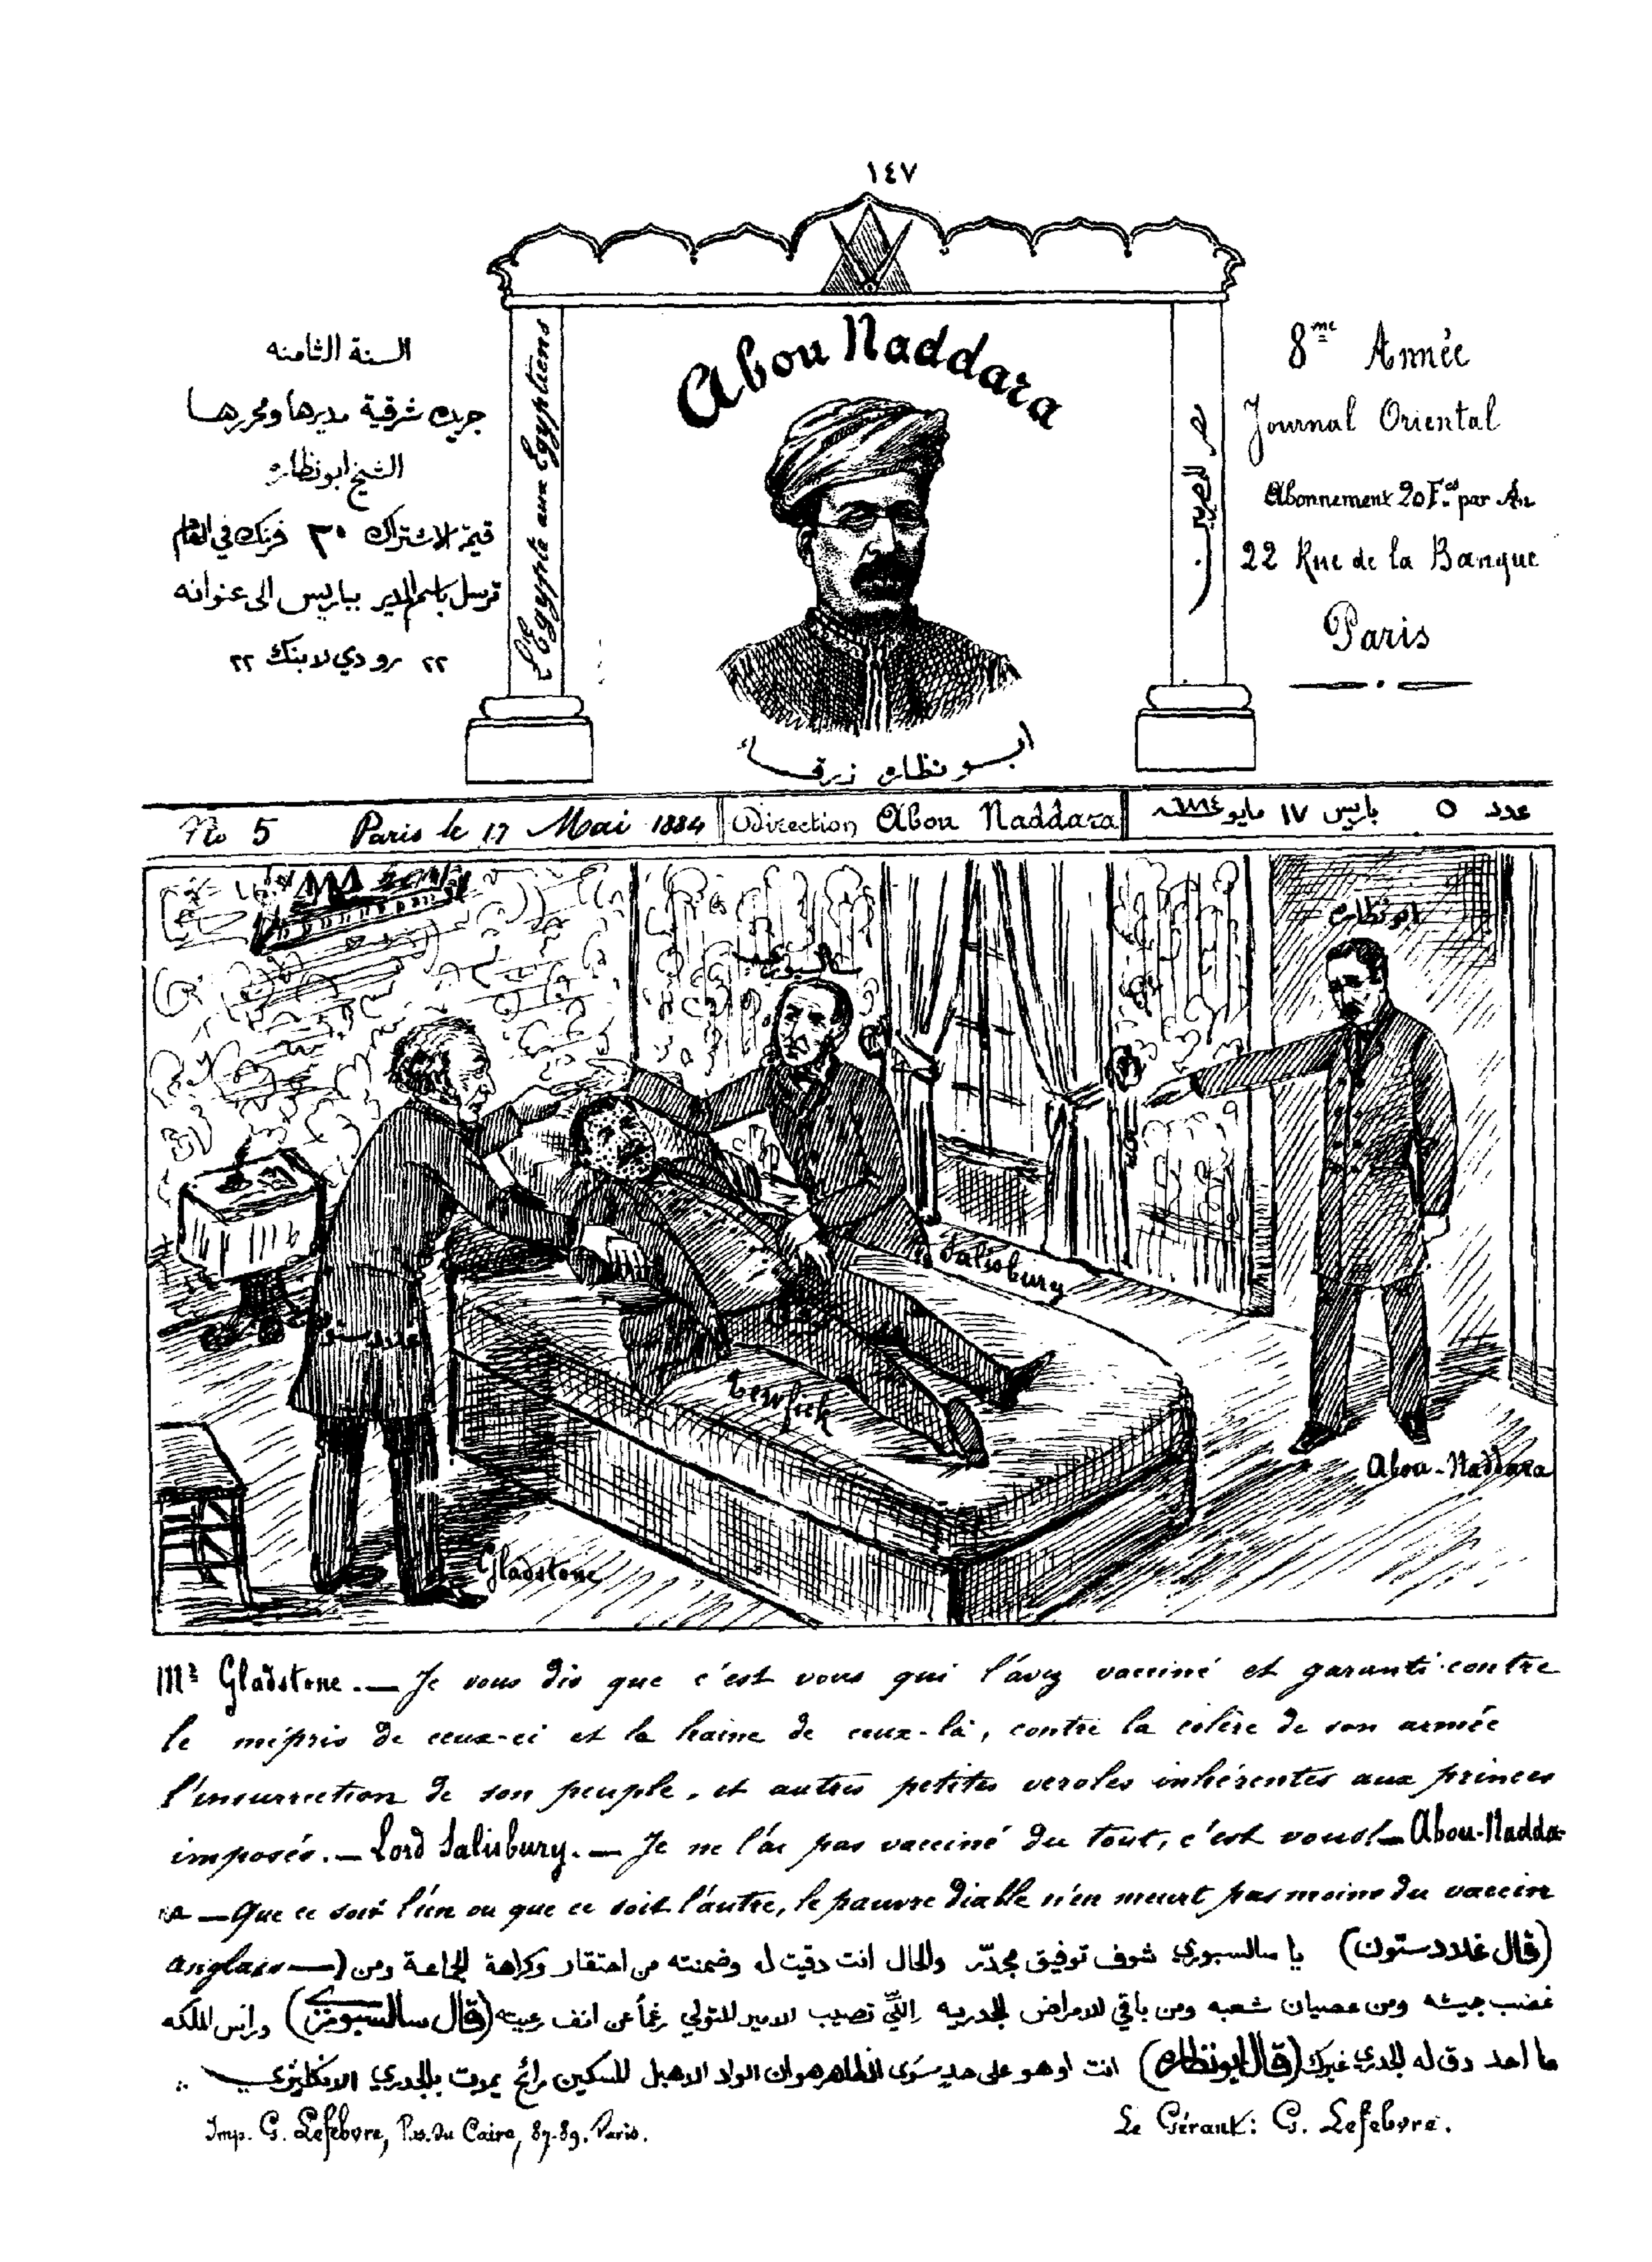 ١٤٧
السنة الثامنه
جريده شرقية مديرها ومحررها
الشيخ ابو نظاره
قيمة الاشتراك ٣٠ فرنك في العام
ترسل باسم المدير بباريس الى عنوانه
٢٢ رو دي لا بنك ٢٢
L'Egypte aux Egyptiens
Abou Naddara
ابو نظاره زرقا
مصر للمصريين
8me Année
Journal Oriental
Abonnement 20 F.cs par An
22 Rue de la Banque
Paris
No 5 Paris le 17 Mai 1884
Direction Abou Naddara
عدد ٥ باريس ١٧ مايو ١٨٨٤
سالسبوري
ابو نظاره
غلادستون
Salisbury
Tewfick
Abou-Naddara
Gladstone
Mr Gladstone.— Je vous dis que c'est vous qui l'avez vacciné et garanti contre
le mépris de ceux-ci et la haine de ceux-là, contre la colère de son armée
l'insurrection de son peuple, et autres petites veroles inhérentes aux princes
imposés.— Lord Salisbury.— Je ne l'ai pas vacciné du tout, c'est vous!— Abou-Nadda-
ra — Que ce soit l'un ou que ce soit l'autre, le pauvre diable n'en meurt pas moins du vaccin
anglais —
(قال غلادستون) يا سالسبوري شوف توفيق مجدّر والحال انت دقيت له وضمنته من احتقار وكراهة الجماعة ومن
غضب جيشه ومن عصيان شعبه ومن باقي الامراض الجدريه اللّي تصيب الامير المتولي رغماً عن انف رعيته (قال سالسبوري) وراس الملكه
ما احد دق له الجدري غيرك (قال ابو نظاره) انت او هو على حدٍ سوى الظاهر هو ان الواد الاهبل المسكين رائح يموت بالجدري الانكليزي
Imp. G. Lefebvre, Pas. du Caire, 87-89. Paris.
Le Gérant: G. Lefebvre.